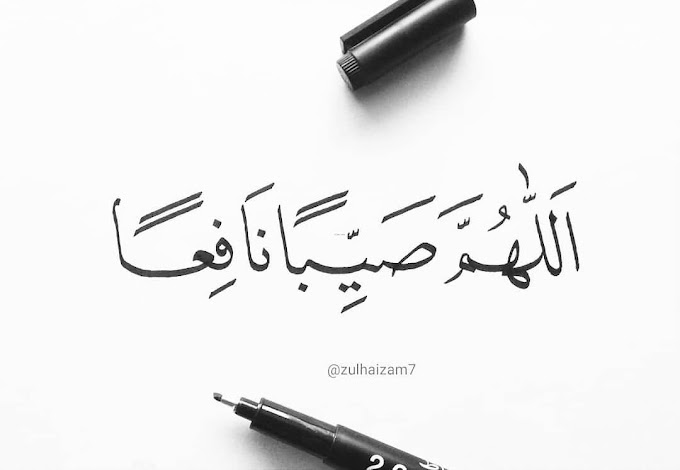 اَللّٰهُمَّ صَيِّبًا نَافِعًا
@zulhaizam7
2.0